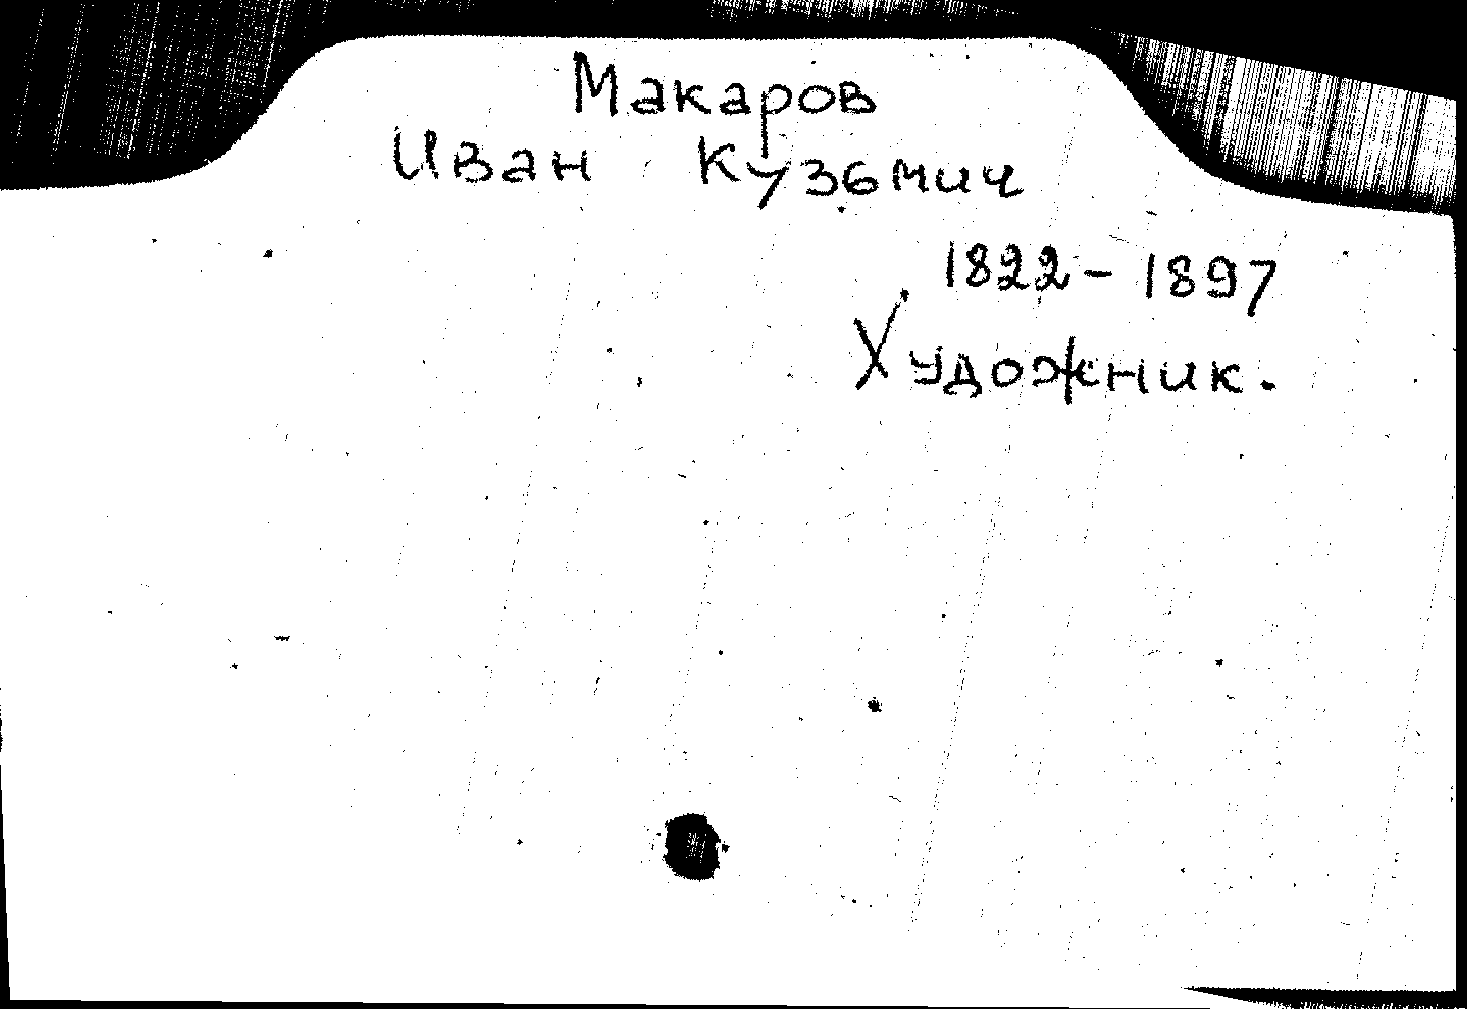 Макаров
Иван Кузьмич
1822 - 1897
Художник.